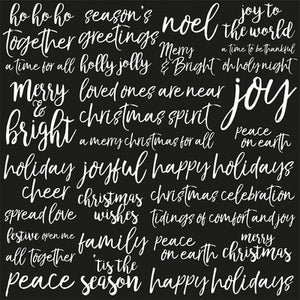 ho ho ho
together
a time for all
season's
greetings
holly jolly
noel
Merry
& Bright
joy to
the world
a time to be thankful
oh holy night
Merry
&
bright
loved ones are near
christmas spirit
a merry christmas for all
joy
peace
on earth
holiday
cheer
spread love
joyful
christmas
wishes
happy holidays
christmas celebration
tidings of comfort and joy
festive open me
all together
peace
family
'tis the
season
peace
on earth
merry
christmas
happy holidays